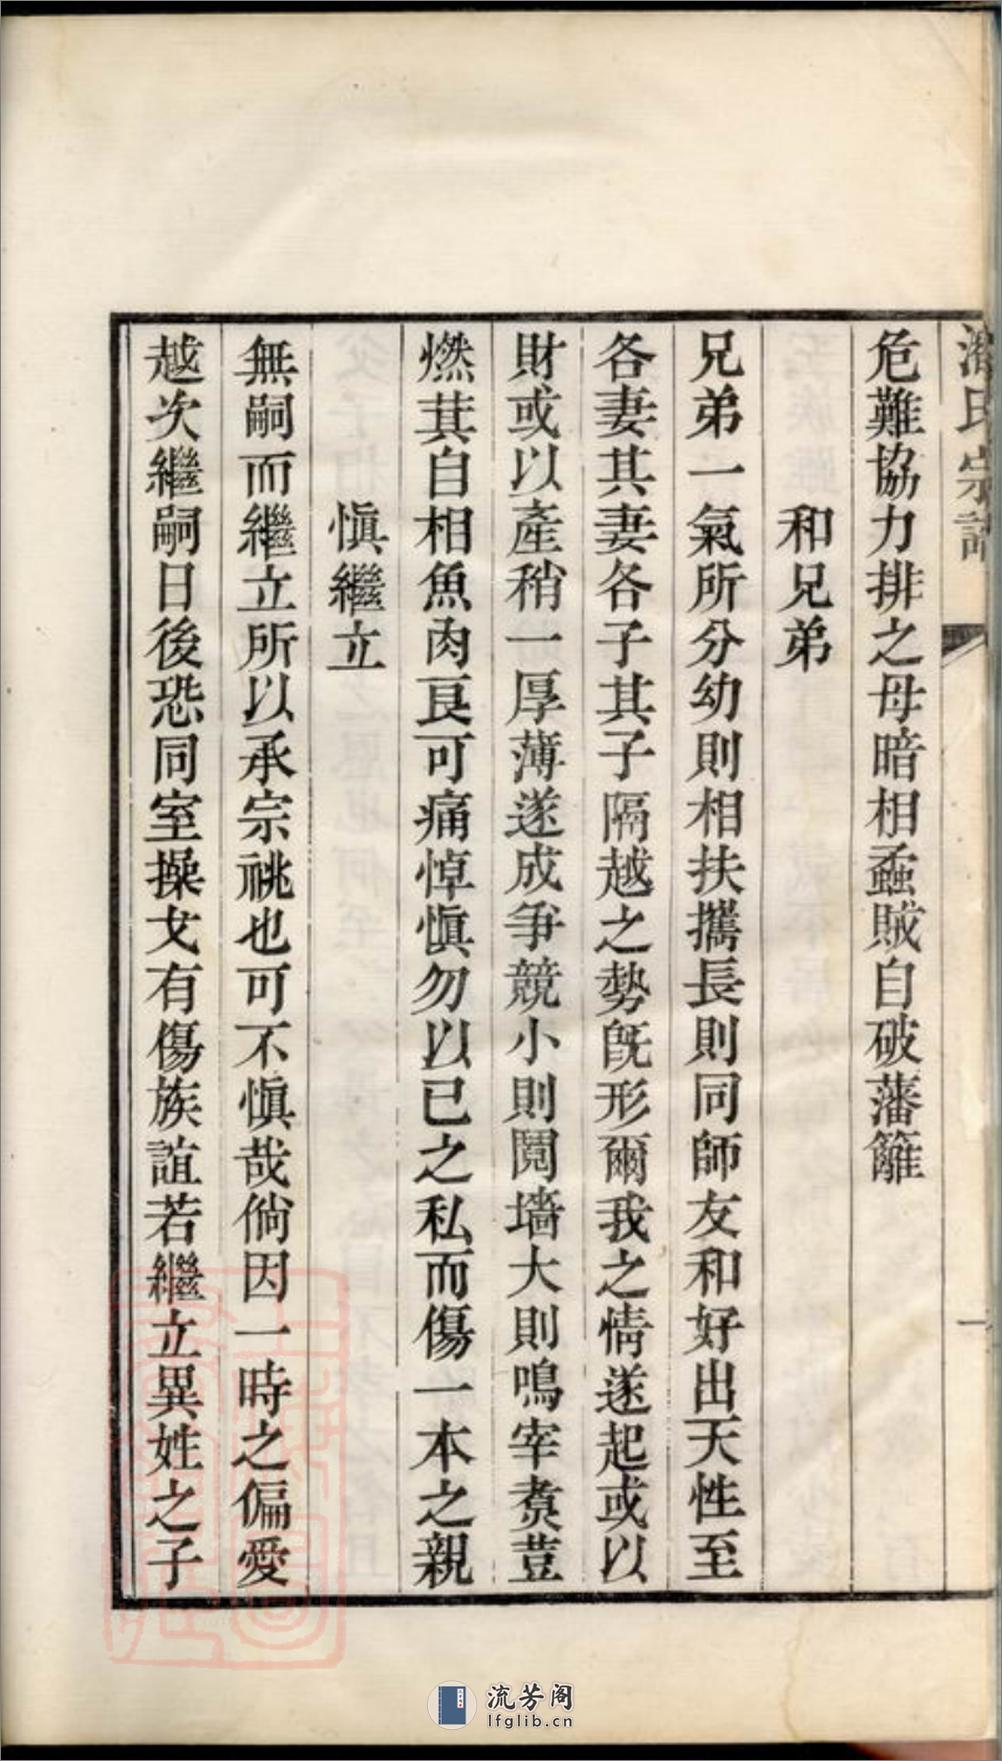 氏宗譜
一
危難協力排之毋暗相蟊賊自破藩籬
和兄弟
兄弟一氣所分幼則相扶攜長則同師友和好出天性至
各妻其妻各子其子隔越之勢旣形爾我之情遂起或以
財或以產稍一厚薄遂成爭競小則鬩墻大則鳴宰煑荳
燃萁自相魚肉良可痛悼愼勿以己之私而傷一本之親
愼繼立
無嗣而繼立所以承宗祧也可不愼哉倘因一時之偏愛
越次繼嗣日後恐同室操戈有傷族誼若繼立異姓之子
流芳阁
lfglib.cn